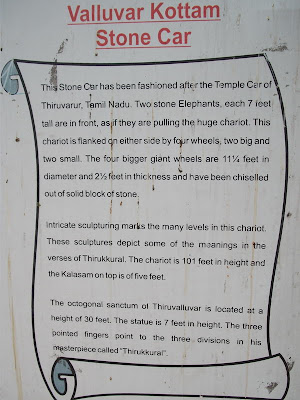 Valluvar Kottam
Stone Car
This Stone Car has been fashioned after the Temple Car of
Thiruvarur, Temil Nadu. Two stone Elephants, each 7 feet
tall are in front, as if they are pulling the huge chariot. This
chariot is flanked on either side by four wheels, two big and
two small. The four bigger giant wheels are 11¼ feet in
diameter and 2½ feet in thickness and have been chiselled
out of solid block of stone.
Intricate sculpturing marks the many levels in this chariot.
These sculptures depict some of the meanings in the
verses of Thirukkural. The chariot is 101 feet in height and
the Kalasam on top is of five feet.
The octogonal sanctum of Thiruvalluvar is located at a
height of 30 feet. The statue is 7 feet in height. The three
pointed fingers point to the three divisions in his
masterpiece called "Thirukkural".